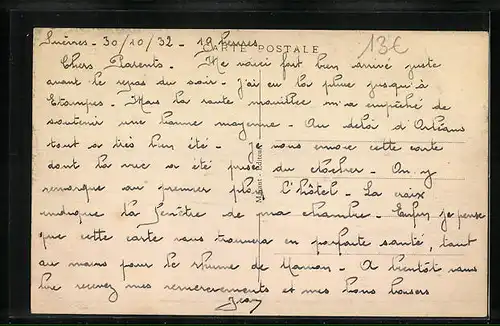 Suèvres - 30/10/32 - 19 heures
CARTE POSTALE
13€
Chers Parents - Me voici fort bien arrivé juste
avant le repas du soir - J'ai eu la pluie jusqu'à
Etampes - Mais la route mouillée m'a empêché de
soutenir une bonne moyenne - Au delà d'Orléans
tout a très bien été - Je vous envoie cette carte
dont la vue a été prise du clocher - On y
remarque au premier plan l'hôtel - La croix
indique la fenêtre de ma chambre - Enfin je pense
que cette carte vous trouvera en parfaite santé, tout
au moins pour le rhume de Maman - A bientôt vous
lire recevez mes remerciements et mes bons baisers
Jean